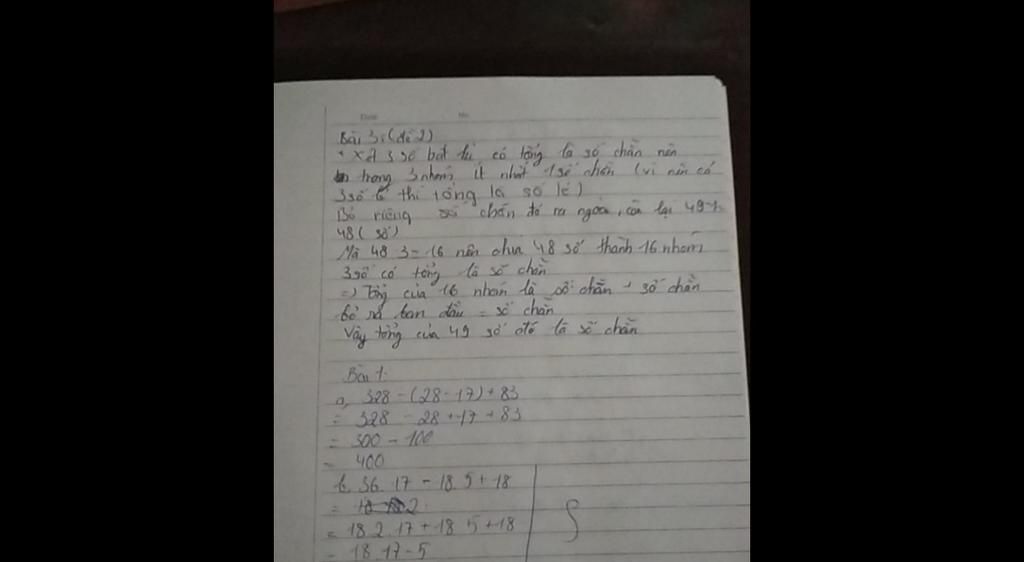 Date No.
Bài 3: (đề 2)
+ Xét 3 số bất kì có tổng là số chẵn nên
trong 3 nhóm ít nhất 1 số chẵn (vì nên có
3 số lẻ thì tổng là số lẻ)
Bỏ riêng số chẵn đó ra ngoài, còn lại 49-1=
48 (số)
Mà 48 : 3 = 16 nên chia 48 số thành 16 nhóm
3 số có tổng là số chẵn
=) Tổng của 16 nhóm là số chẵn + số chẵn
bỏ ra ban đầu = số chẵn
Vậy tổng của 49 số đó là số chẵn
Bài 1:
a, 328 - (28 - 17) + 83
= 328 - 28 + 17 + 83
= 300 - 100
= 400
b. 36. 17 - 18. 5 + 18
= 18 2
= 18. 2. 17 + 18 5 + 18
= 18. 17 - 5